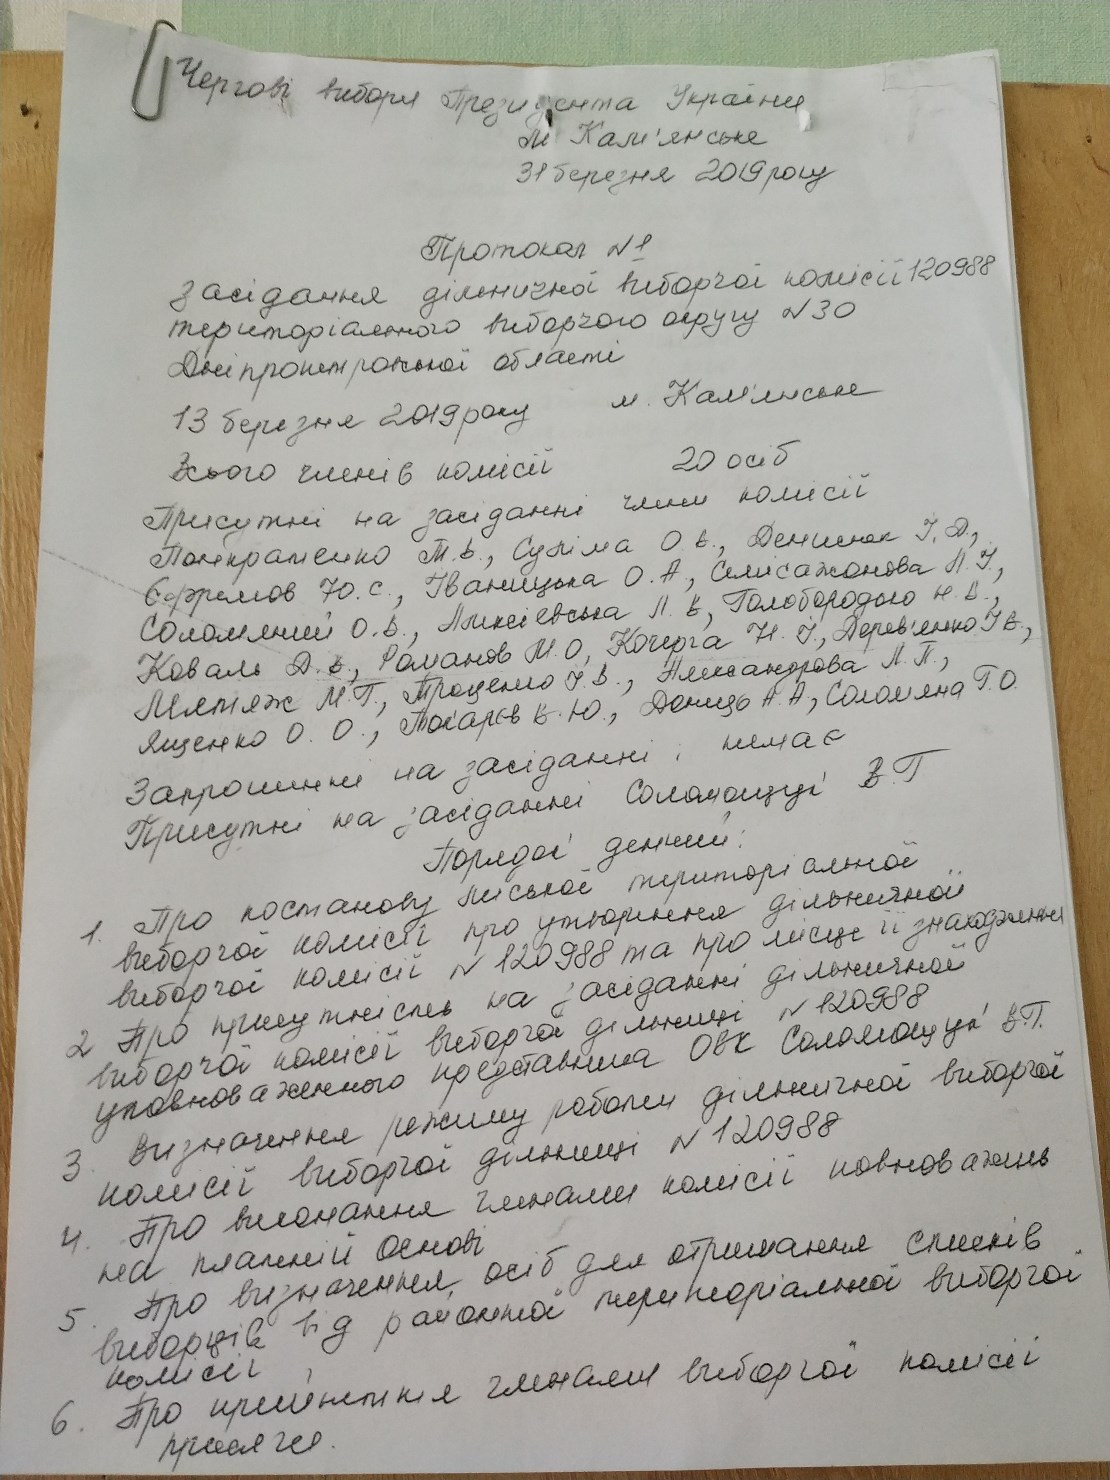 Чергові вибори Президента України
м Кам'янське
31 березня 2019 року
Протокол №1
засідання дільничної виборчої комісії 120988
територіального виборчого округу №30
Дніпропетровської області
13 березня 2019 року м. Кам'янське
Всього членів комісії 20 осіб
Присутні на засіданні члени комісії
Панкратенко Т.В., Суліма О.В., Денисюк І.Д.,
Єфремов Ю.С., Іваницька О.А., Л.І.,
Соломяний О.В., Л.В., Голобородько Н.В.,
Коваль Д.В., Романов М.О, Кочерга Н.І., Дерев'янко І.В.,
Мятеж М.П., Троценко І.В., Александрова Л.П.,
Ященко О.О., Токарєв В.Ю., Донець А.А, Соломяна Г.О.
Запрошенні на засіданні: немає
Присутні на засіданні В.П
Порядок денний:
1. Про постанову міської територіальної
виборчої комісії про утворення дільничної
виборчої комісії №120988 та про місце її знаходження
2 Про присутність на засіданні дільничної
виборчої комісії виборчої дільниці №120988
уповноваженого представника ОВК В.П.
3. Визначення режиму роботи дільничної виборчої
комісії виборчої дільниці №120988
4. Про виконання членами комісії повноважень
на платній основі
5. Про визначення осіб для отримання списків
виборців від районної територіальної виборчої
комісії
6. Про прийняття членами виборчої комісії
присяги.